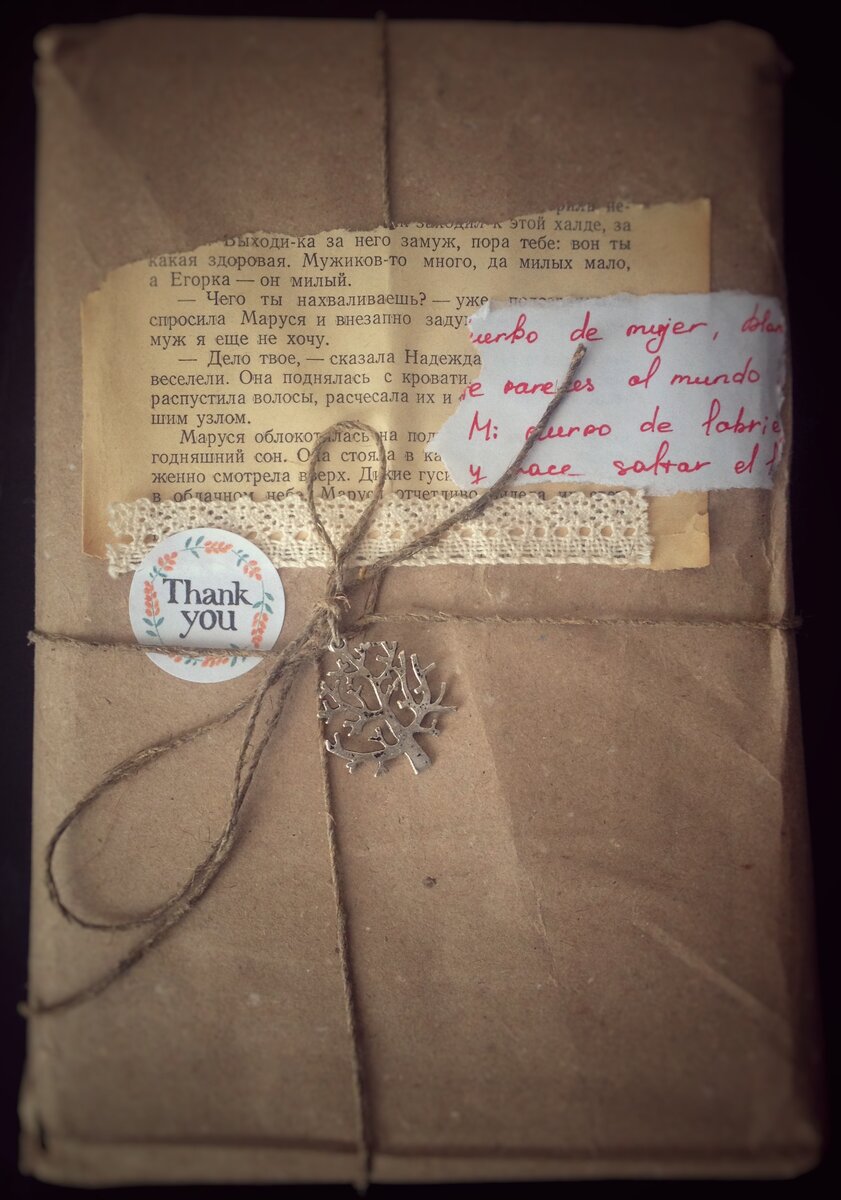 этой халде, за
Выходи-ка за него замуж, пора тебе: вон ты
какая здоровая. Мужиков-то много, да милых мало,
а Егорка — он милый.
— Чего ты нахваливаешь? — уже
спросила Маруся и внезапно
муж я еще не хочу.
— Дело твое, — сказала Надежда
веселели. Она поднялась с кровати,
распустила волосы, расчесала их и
шим узлом.
Маруся облокотилась на
годняшний сон. Она стояла в
женно смотрела вверх. Дикие
в облачном небе. Маруся отчетливо
de mujer, blan
al mundo
de labrie
y hace saltar el
Thank
you